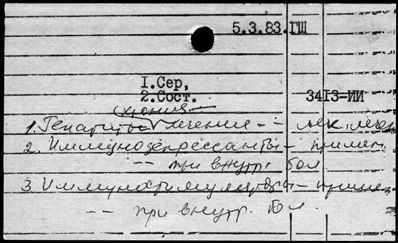 5.3.83.ГШ
1.Сер,
2.Сост. 3413-ИИ
хронич —
1. Гепатиты лечение — лек. лечен
2. Иммунодепрессанты — примен.
—"— при внутр. бол
3. Иммуностимуляторы — примен.
—"— при внутр. бол.